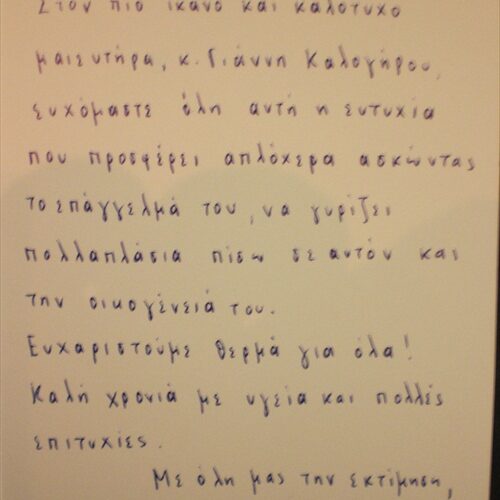 Στον πιο ικανό και καλότυχο
μαιευτήρα, κ. Γιάννη Καλογήρου,
ευχόμαστε όλη αυτή η ευτυχία
που προσφέρει απλόχερα ασκώντας
το επάγγελμά του, να γυρίζει
πολλαπλάσια πίσω σε αυτόν και
την οικογένειά του.
Ευχαριστούμε θερμά για όλα!
Καλή χρονιά με υγεία και πολλές
επιτυχίες.
Με όλη μας την εκτίμηση,